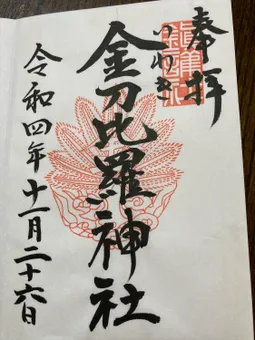 奉拝
いわき
金刀比羅神社
令和四年十一月二十六日